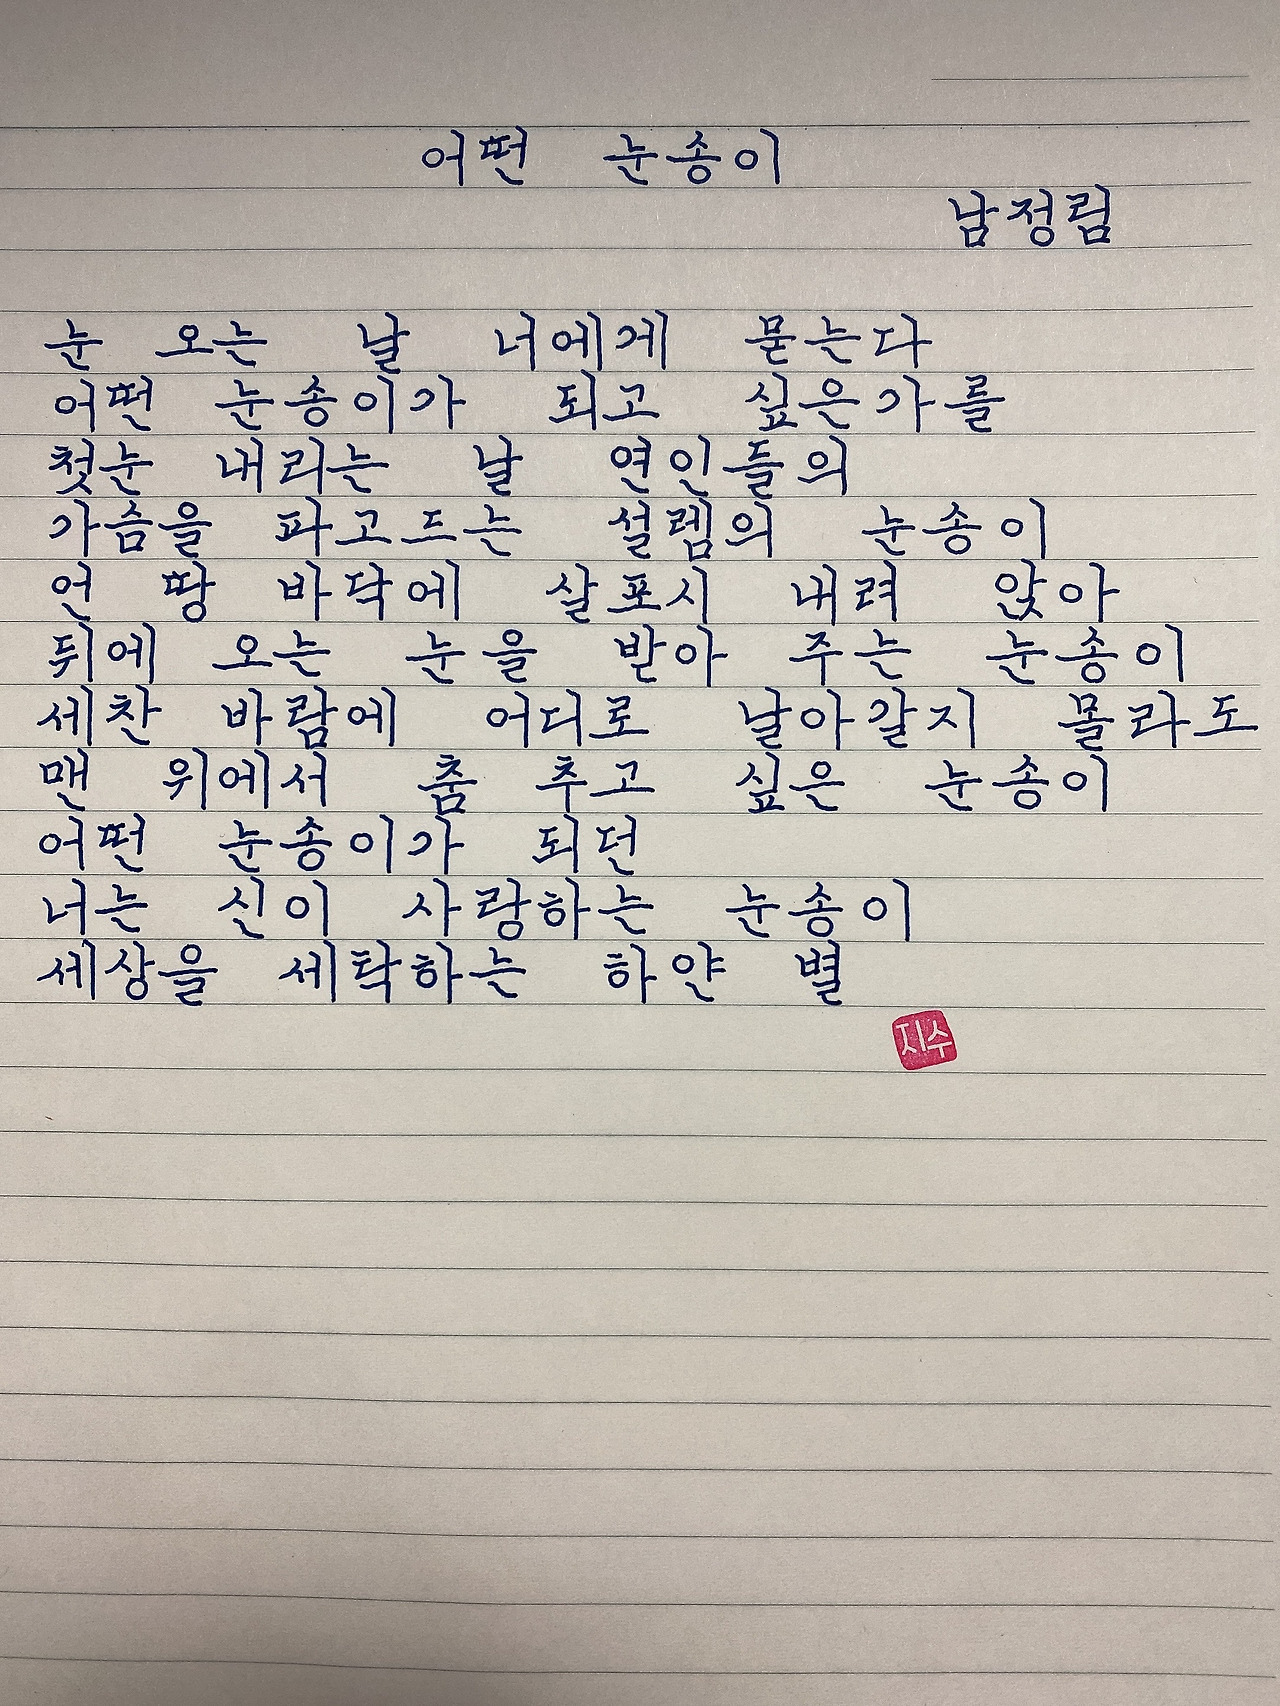 어떤 눈송이
남정림
눈 오는 날 너에게 묻는다
어떤 눈송이가 되고 싶은가를
첫눈 내리는 날 연인들의
가슴을 파고드는 설렘의 눈송이
언 땅 바닥에 살포시 내려 앉아
뒤에 오는 눈을 받아 주는 눈송이
세찬 바람에 어디로 날아갈지 몰라도
맨 위에서 춤 추고 싶은 눈송이
어떤 눈송이가 되던
너는 신이 사랑하는 눈송이
세상을 세탁하는 하얀 별
지수